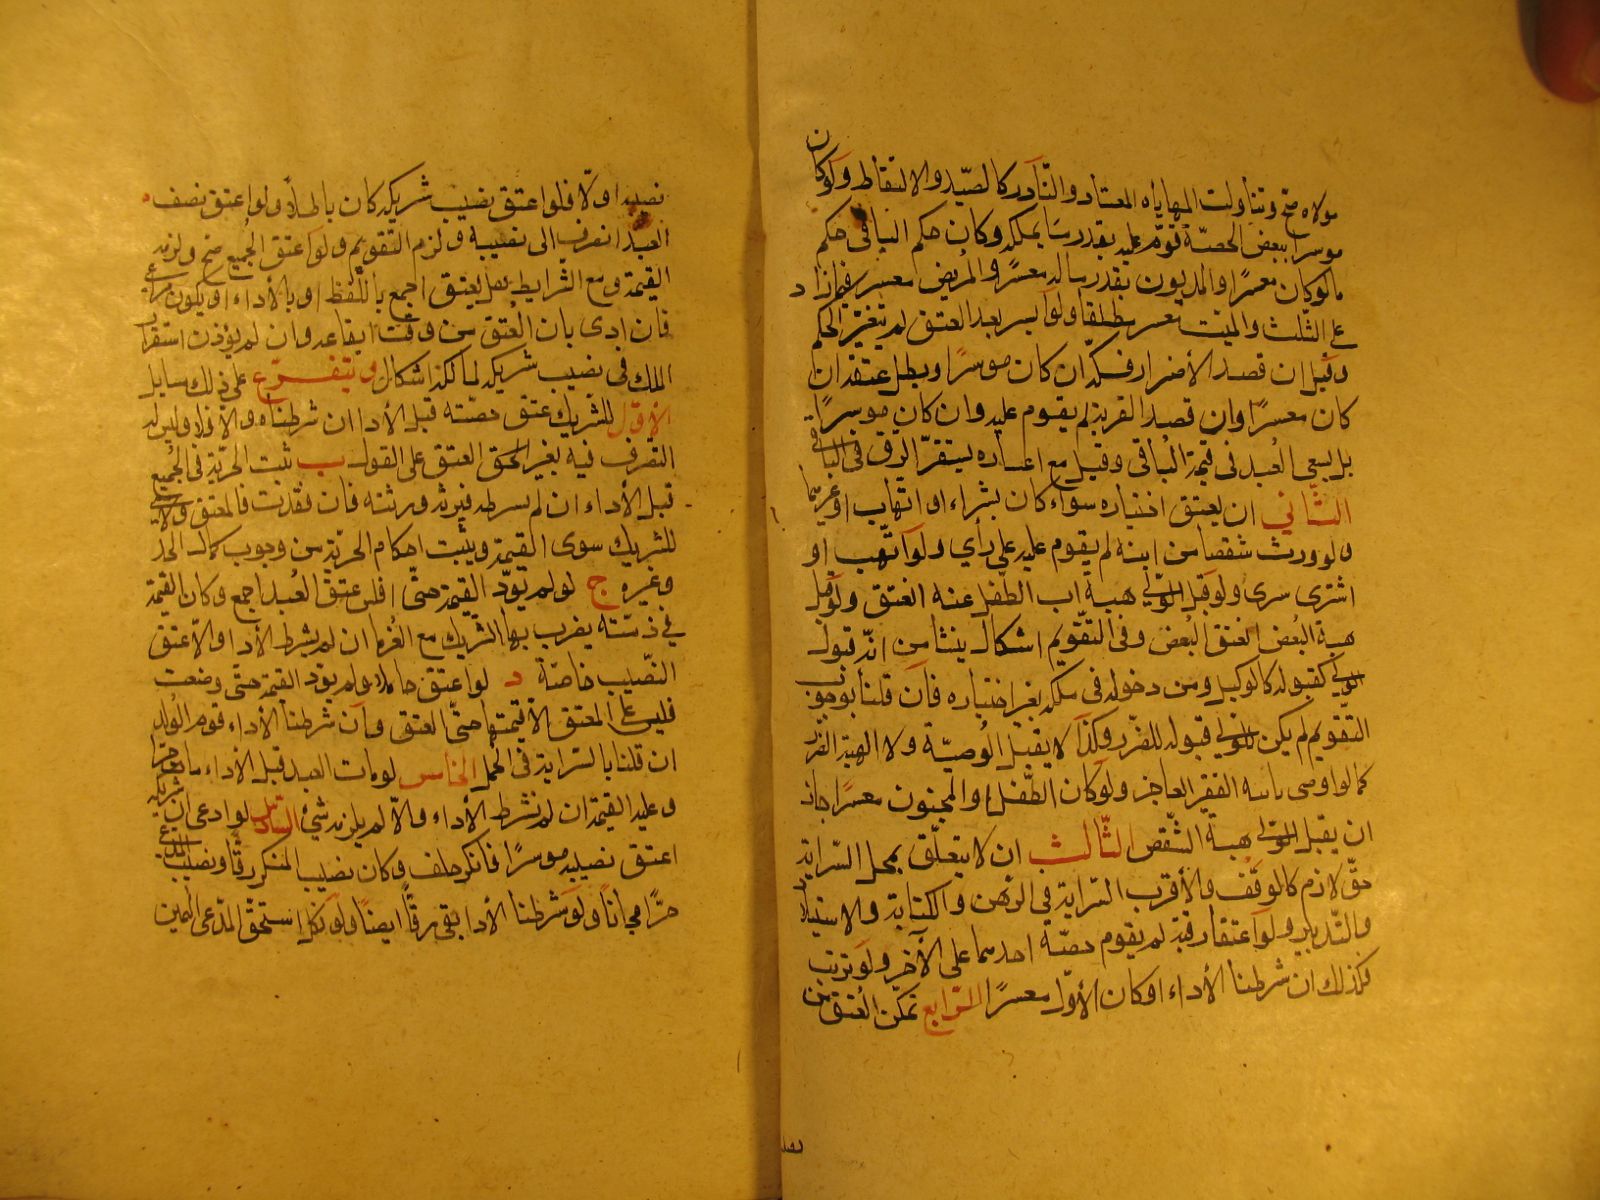 مولاه صح وتناولت المهاياه المعتاد والنّادر كالصّيد والالتقاط ولو كان
موسرا ببعض الحصّة قوّم عليه بقدر ما يملكه وكان حكم الباقى حكم
مالو كان معسرًا والمديون بقدر ماله معسرًا والمريض معسر فيما زاد
على الثّلث والميّت معسر مطلقا ولو ايسر بعد العتق لم يتغيّر الحكم
وقيل ان قصد الأضرار فكّه ان كان موسرًا وبطل عتقه ان
كان معسرًا وان قصد القربة لم يقوم عليه وان كان موسرًا
بل يسعى العبد فى قيمة الباقى وقيل مع اعساره يستقرّ الرّق فى الباقى
الثّانى ان يعتق اختياره سواء كان بشراء او اتهاب او غيرهما
ولو ورث شقصا من ابنه لم يقوم عليه على رأي ولو اتّهب او
اشترى سرى ولو قبل الولىّ هبة اب الطّفل عنه انعتق ولو قبل
هبة البعض انعتق البعض وفى التقّويم اشكال ينشا من انّ قبول
الولىّ كقبوله كالوكيل ومن دخوله فى ملكه بغير اختياره فان قلنا بوجوب
التقّويم لم يكن للولىّ قبوله للضّرر وكذا لا يقبل الوصيّة ولا الهبة الضرر
كما لو اوصى بابنه الفقير العاجز ولو كان الطّفل او المجنون معسرًا جاز
ان يقبل الولىّ هبة الشّقص الثّالث ان لا يتعلّق بمحل السّراية
حقّ لازم كالوقف والأقرب السّراية في الرّهن والكتابة والاستيلاد
والتّدبير ولو اعتقا دفعة لم يقوم حصّة احدهما على الآخر ولو ترتب
فكذلك ان شرطنا الأداء او كان الأوّل معسرًا الرّابع تمكّن العتق من
نصيبه اولّا فلو اعتق نصيب شريكه كان باطلاً ولو اعتق نصف
العبد انصرف الى نصيبه ولزم التقويم ولو اعتق الجميع صح ولزمه
القيمة ومع الشّرايط هل يعتق اجمع باللّفظ او بالأداء او يكون مراعى
فان ادى بان العتق من وقت ايقاعه وان لم يؤد بان استقرار
الملك فى نصيب شريكه لمالكه اشكال ويتفرّع على ذلك مسايل
الأوّل للشّريك عتق حصّته قبل الأدا ان شرطناه والا فلا وليس له
التصّرف فيه بغير العتق على القول ب تثبت الحريّة فى الجميع
قبل الأداء ان لم يشرطه فيرثه ورثته فان فقدت فالمعتق ولا شئ
للشريك سوى القيمة ويثبت احكام الحريّة من وجوب كمال الحد
وغيره ج لو لم يؤدّ القيمة حتّى افلس عتق العبد اجمع وكان القيمة
في ذمّته يضرب بها الشّريك مع الغرما ان لم يشرط الأدا والّا عتق
النّصيب خاصّة د لو اعتق حاملا ولم يؤد القيمة حتّى وضعت
فليس على المعتق الا قيمتها حتّى العتق وان شرطنا الأداء قوم الولد
ان قلنا بالسّراية فى الحمل الخامس لو مات العبد قبل الأداء مات حرا
وعليه القيمة ان لم نشرط الأداء والّا لم يلزمه شئ السّادس لو ادعى ان شريكه
اعتق نصيبه موسرًا فانكر حلف وكان نصيب المنكر رقّا ونصيب المدّعى
حرًّا مجاناً ولو شرطنا الأداء بقى رقاً ايضاً ولو نكل استحقّ المدّعى اليمين